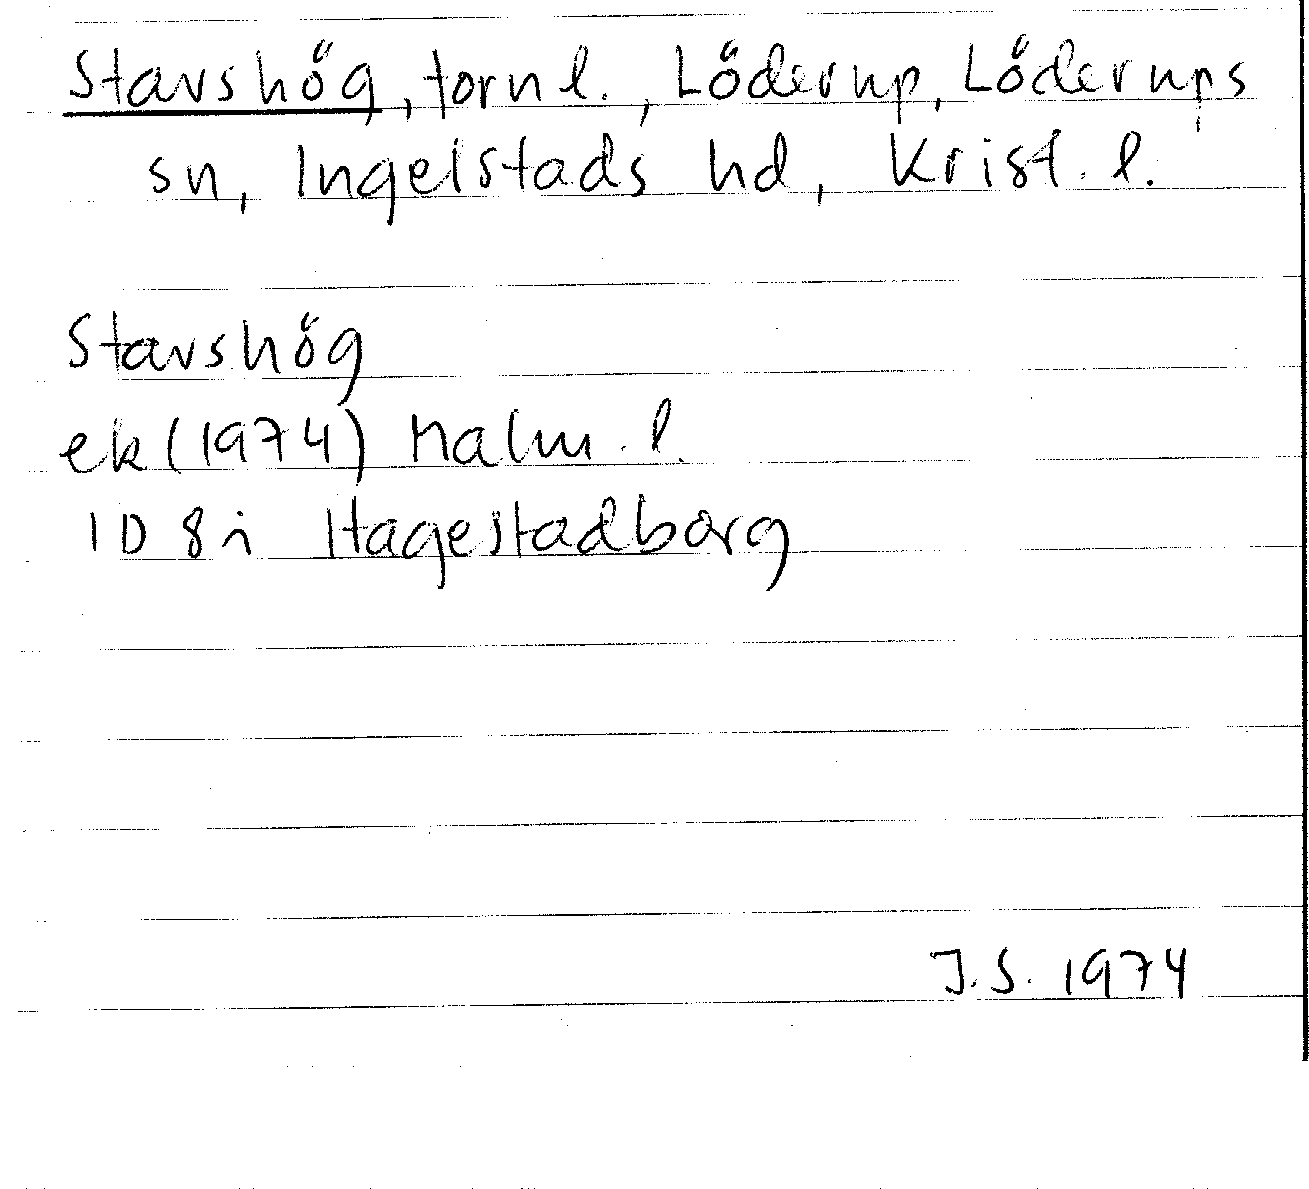 Stavshög, fornl., Löderup, Löderups
sn, Ingelstads hd, Krist. l.
Stavshög
ek (1974) Malm. l.
1D 8i Hagestadborg
J.S. 1974